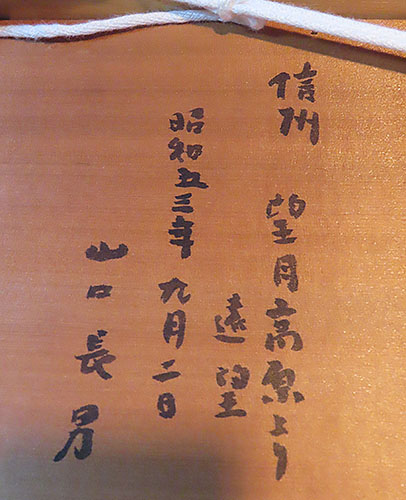 信州 望月高原より
遠望
昭和五三年 九月二日
山口長男